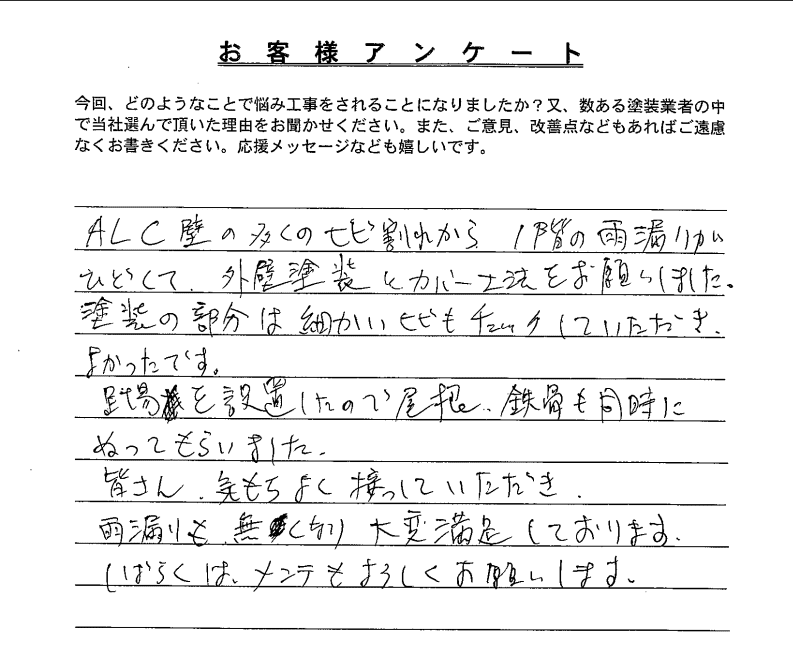 お客様アンケート
今回、どのようなことで悩み工事をされることになりましたか？又、数ある塗装業者の中
で当社選んで頂いた理由をお聞かせください。また、ご意見、改善点などもあればご遠慮
なくお書きください。応援メッセージなども嬉しいです。
ALC壁の多くのヒビ割れから 1階の雨漏りが
ひどくて、外壁塗装とカバー工法をお願いしました。
塗装の部分は細かいヒビもチェックしていただき、
よかったです。
足場を設置したので屋根、鉄骨も同時に
ぬってもらいました。
皆さん、気もちよく接っしていただき、
雨漏りも無くなり大変満足しております。
しばらくは、メンテもよろしくお願いします。